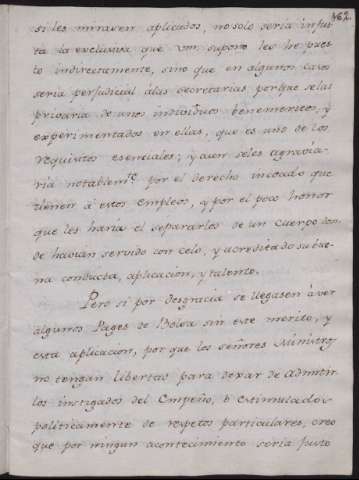 462.
si les mirasen aplicados, no solo sería injus
ta la exclusiva que vm supone les he pues
to indirectamente, sino que en algunos casos
sería perjudicial á las Secretarías porque se las
privaría de unos individuos benemeritos, y
experimentados en ellas, que es uno de los
requisitos esenciales; y a ser se les agravia-
ría notablem.te por el derecho incoado que
tienen á estos empleos, y por el poco honor
que les haría el separarlos de un cuerpo don
de havian servido con celo, y acreditado su bue
na conducta, aplicacion, y talento.
Pero si por desgracia se llegasen á ver
algunos Pages de Bolsa sin este merito, y
esta aplicacion, por que los señores Ministros
no tengan libertad para dexar de admitir
los instigados del Empeño, ò estimulados
politicamente de respetos particulares, creo
que por ningun acontecimiento sería justo